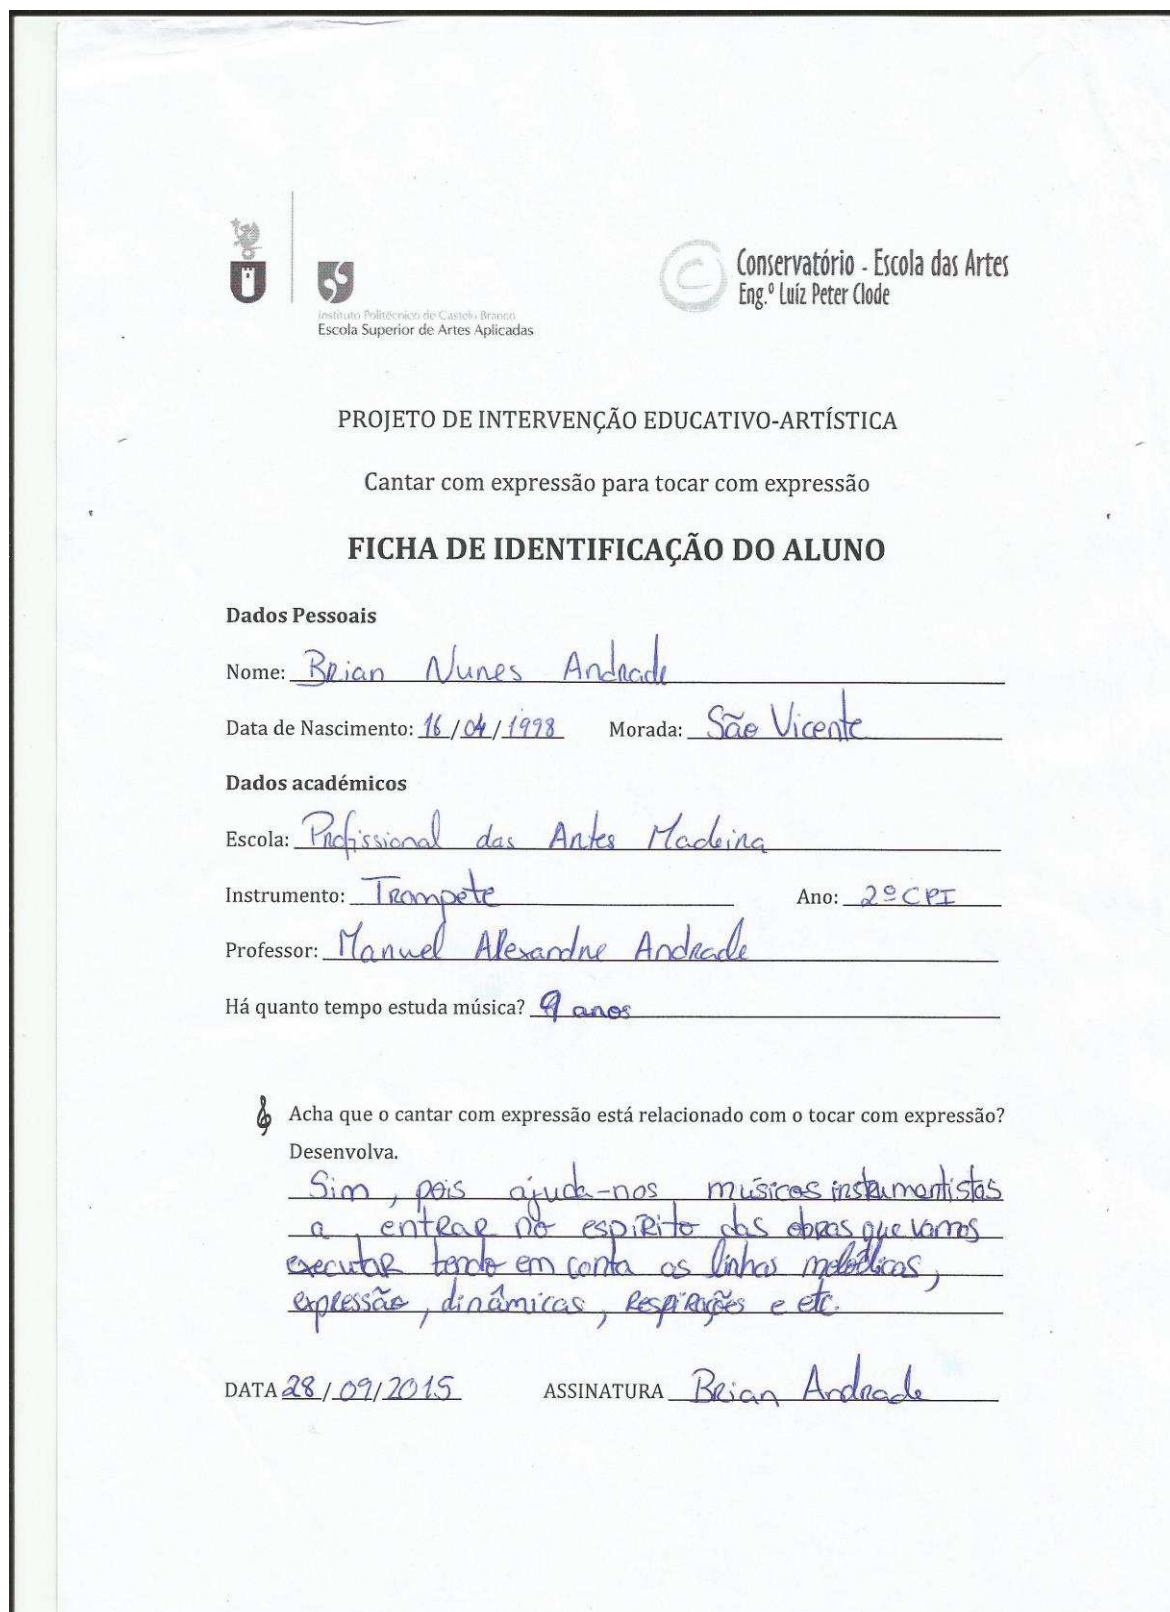 Instituto Politécnico de Castelo Branco
Escola Superior de Artes Aplicadas
Conservatório - Escola das Artes
Eng.º Luíz Peter Clode
PROJETO DE INTERVENÇÃO EDUCATIVO-ARTÍSTICA
Cantar com expressão para tocar com expressão
FICHA DE IDENTIFICAÇÃO DO ALUNO
Dados Pessoais
Nome: Brian Nunes Andrade
Data de Nascimento: 16/04/1998 Morada: São Vicente
Dados académicos
Escola: Profissional das Artes Madeira
Instrumento: Trompete Ano: 2º CPI
Professor: Manuel Alexandre Andrade
Há quanto tempo estuda música? 9 anos
Acha que o cantar com expressão está relacionado com o tocar com expressão?
Desenvolva.
Sim, pois ajuda-nos, músicos instrumentistas
a, entrar no espírito das obras que vamos
executar tendo em conta as linhas melódicas,
expressão, dinâmicas, respirações e etc.
DATA 28/09/2015 ASSINATURA Brian Andrade